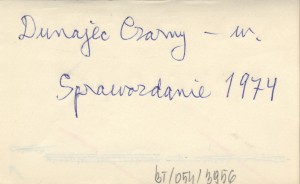 Dunajec Czarny – w.
Sprawozdanie 1974
BT/054/3956